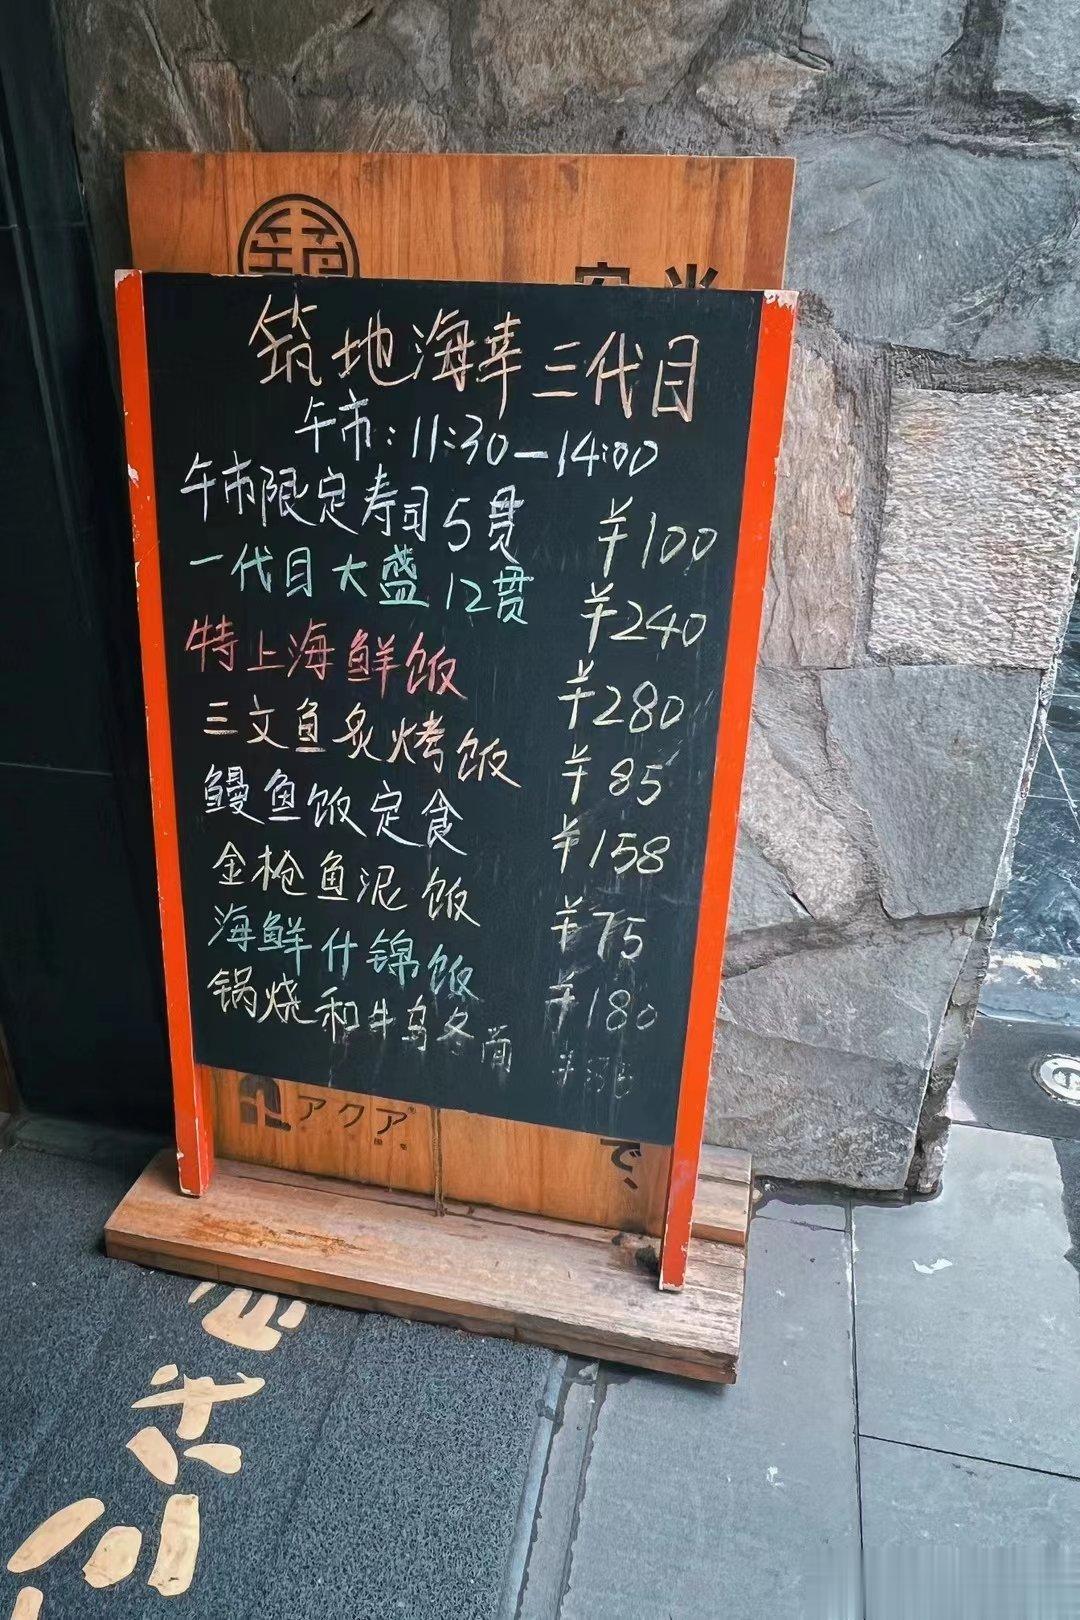 筑地海幸三代目
午市：11:30—14:00
午市限定寿司5贯 ¥100
一代目大盛12贯 ¥240
特上海鲜饭 ¥280
三文鱼炙烤饭 ¥85
鳗鱼饭定食 ¥158
金枪鱼泥饭 ¥75
海鲜什锦饭 ¥180
锅烧和牛乌冬
アクア
で、
三代目